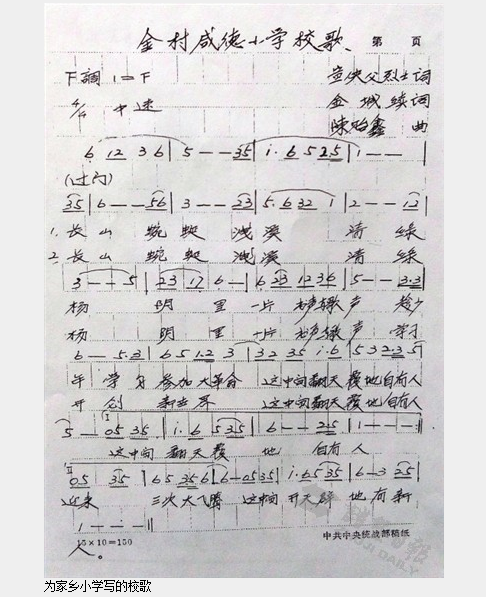 金村咸德小学校歌、 第 页
F调 1=F 童侠父烈士词
4/4 中速 金城续词
陈贻鑫 曲
6 12 3 6 | 5 - - 35 | i. 6 525 | 1 - - |
(过门)
35 | 6 - - 56 | 3 - - 23 | 5. 6 32 1 | 2 - - 12 |
1. 长山 蜿蜒 浅溪 清绿
2. 长山 蜿蜒 浅溪 清绿
3 - - 5 | 23 17 6 - | 6 23 12 36 | 5 - - 3.3 |
杨 明 里 一片 歌声
杨 明 里 一片 歌声 学习
6 - 5.3 | 6 5 1.2 3 | 32 35 i.6 | 5 3 2.3 5 |
年 学习 参加 大革命 这中间翻天覆地自有人
开创 新世界 这中间翻天覆地自有人
5 - 05 35 | i. 6 535 | 6 - - 25 | 1 - - :|
这中间 翻天覆 地 自有人
05 35 | 65 356 | 6-0535 | i.6535 | 6-3 25 |
迎来 三次大飞腾 这中间 开天辟 地有新
1 - - - ‖
人。 15×10=150 中共中央统战部稿纸
为家乡小学写的校歌